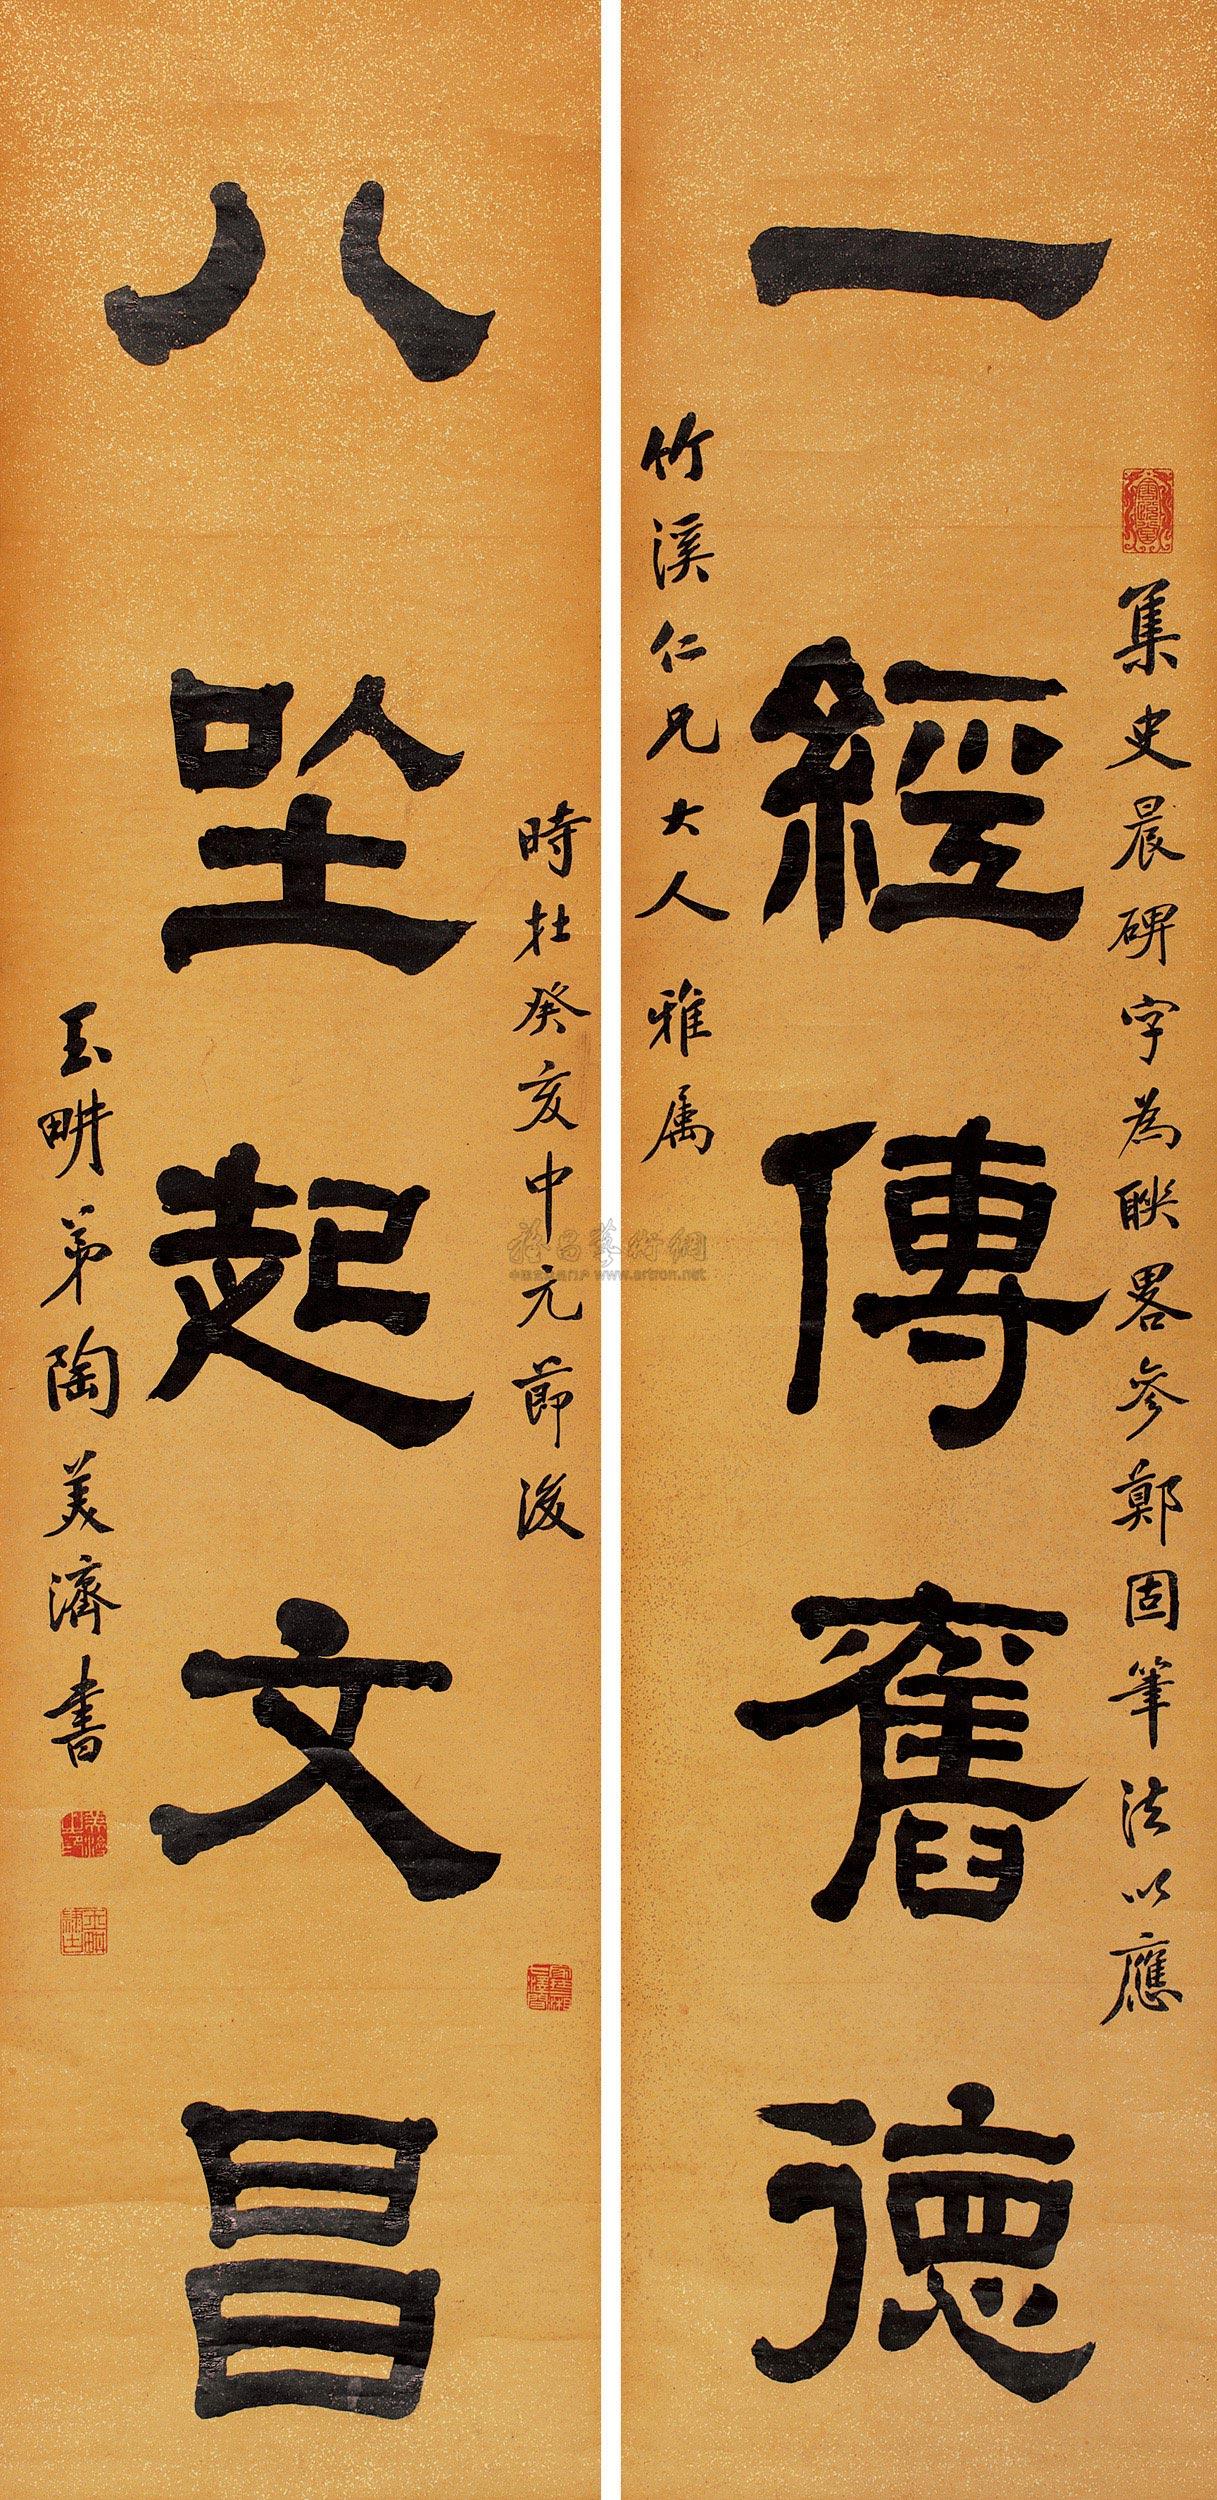 一經傳舊德
集史晨碑字為聯畧參鄭固筆法以應
竹溪仁兄大人雅属
八坐起文昌
時在癸亥中元節後
玉畊弟陶美濟書
www.artron.net